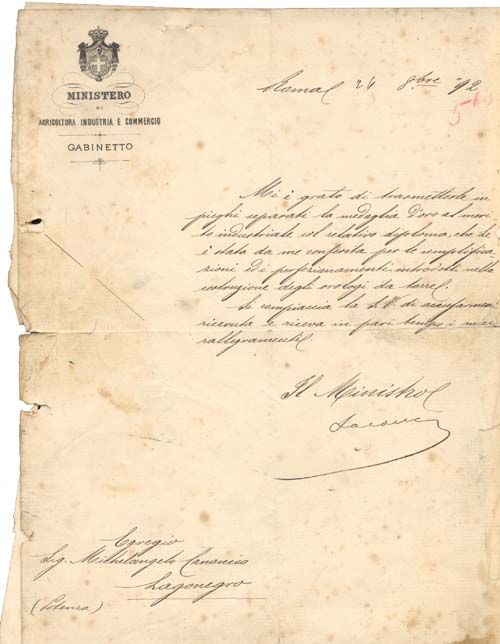 MINISTERO
DI
AGRICOLTURA INDUSTRIA E COMMERCIO
GABINETTO
Roma 24 8bre 92
Mi è grato di trasmetterle in
pieghi separati la medaglia d'oro al meri-
to industriale col relativo diploma, che le
è stata da me conferita per le semplifica-
zioni ed i perfezionamenti introdotti nella
costruzione degli orologi da torre.
Si compiaccia la S.V. di accusarmene
ricevuta e riceva in pari tempo i miei
rallegramenti
Il Ministro
Egregio
Sig. Michelangelo Canonico
Lagonegro
(Potenza)